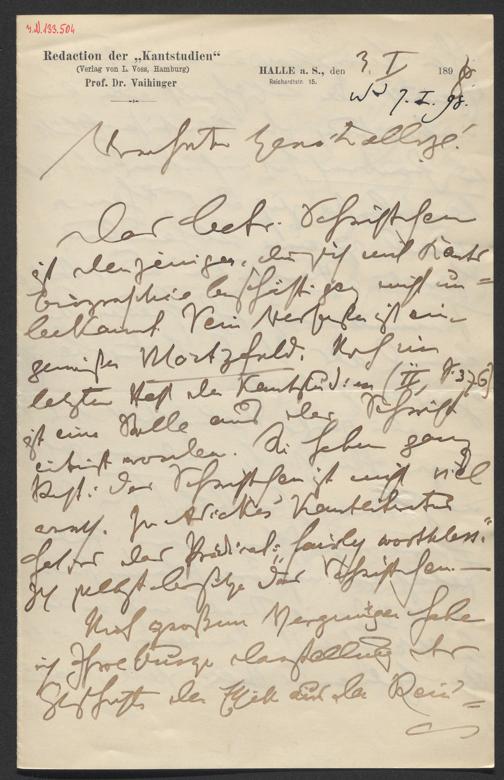 Y.N.133.504
Redaction der „Kantstudien“
(Verlag von L. Voss, Hamburg)
Prof. Dr. Vaihinger
HALLE a. S., den 3. I 1898.
Reichardtstr. 15.
7. I. 98.
Verehrter Herr College!
Das betr. Schriftchen
ist denjenigen, die sich mit Kants
Biographie beschäftigen nicht un=
bekannt. Sein Verfasser ist ein
gewisser Mortzfeld. Noch im
letzten Heft der Kantstudien (II, S. 376)
ist eine Stelle aus der Schrift
citirt worden. Sie haben ganz
Recht: das Schriftchen ist nicht viel
werth. In Adickes' Kantliteratur
hat er das Prädikat: „fairly worthless.“
Ich selbst besitze das Schriftchen.—
Mit großem Vergnügen habe
ich Ihre kurze Darstellung der
Geschichte der Ethik aus der Rein=